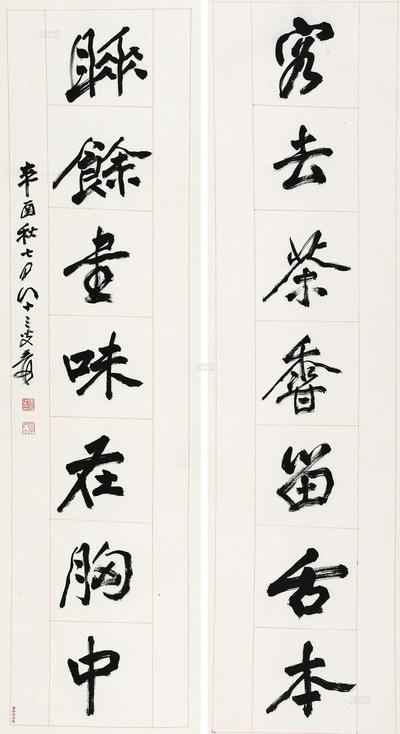 客去茶香留舌本
睡餘書味在胸中
辛酉秋七月八十三叟爰